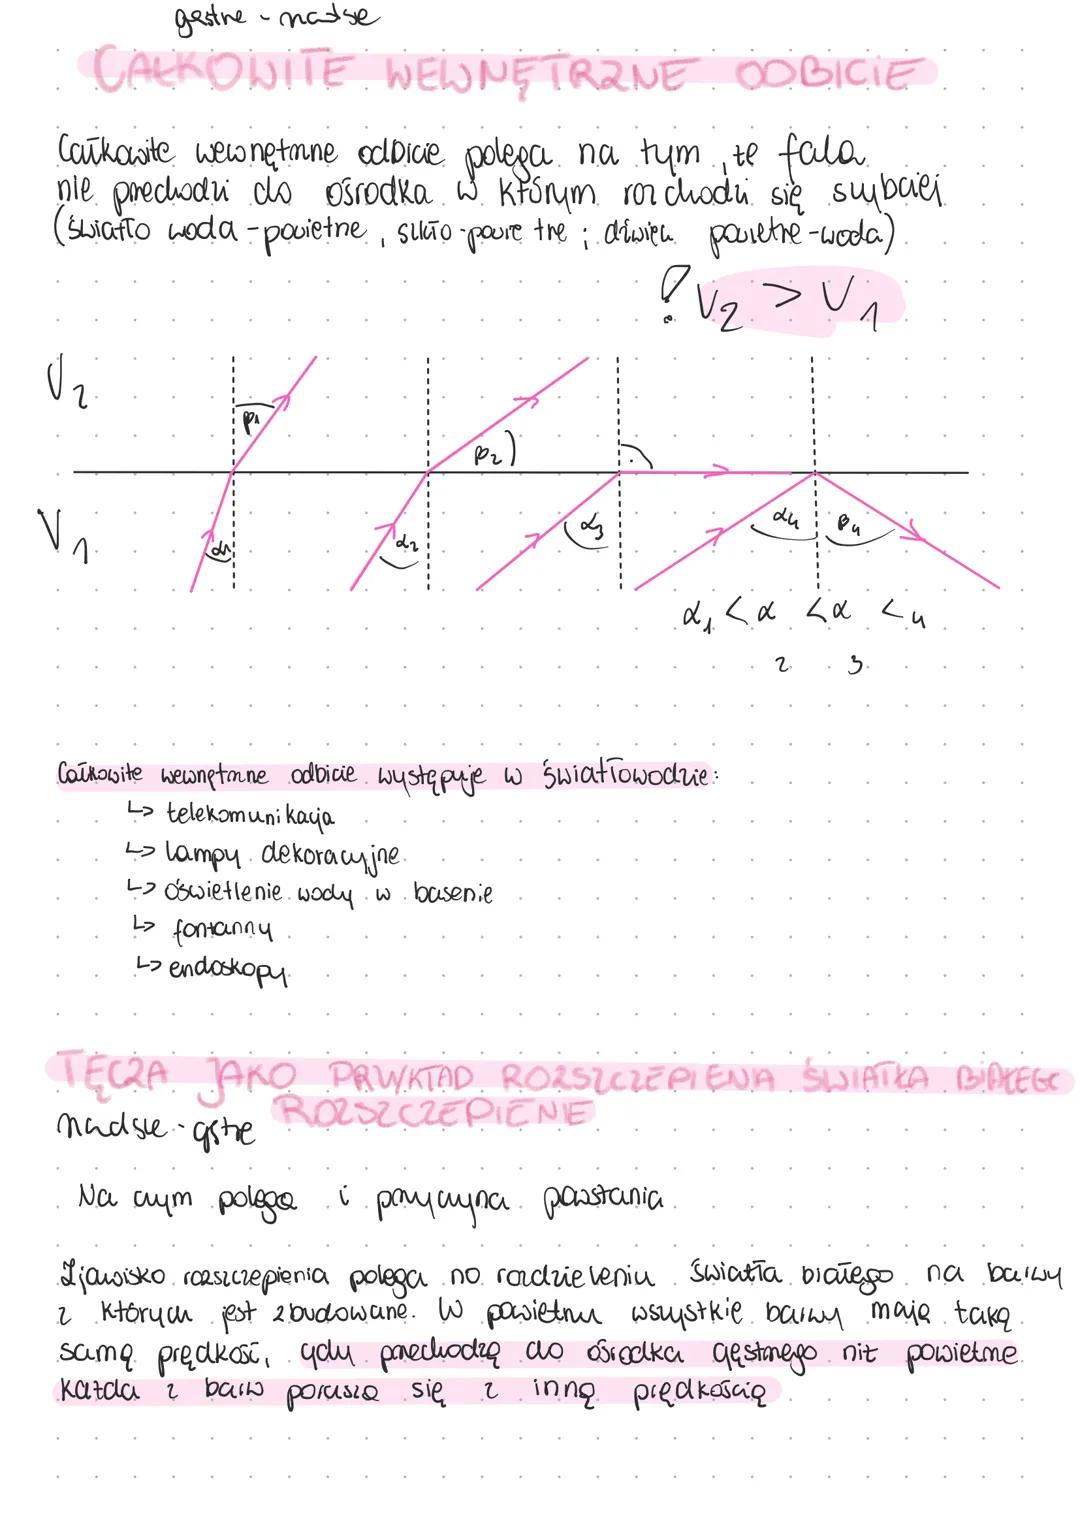 gęstne - nadsze
CAŁKOWITE WEWNĘTRZNE ODBICIE
Całkowite wewnętrzne odbicie polega na tym, że fala
nie przechodzi do ośrodka w którym rozchodzi się szybciej
(światło woda - powietrze, szkło - powietrze ; dźwięk powietrze - woda)
! V2 > V1
V2
β1
β2
V1
α1
α2
α3
α4
β4
α1 < α2 < α3 < 4
Całkowite wewnętrzne odbicie występuje w światłowodzie:
↳ telekomunikacja
↳ lampy dekoracyjne
↳ oświetlenie wody w basenie
↳ fontanny
↳ endoskopy
TĘCZA JAKO PRZYKŁAD ROZSZCZEPIENIA ŚWIATŁA BIAŁEGO
ROZSZCZEPIENIE
Na czym polega i przyczyna powstania
Zjawisko rozszczepienia polega na rozdzieleniu światła białego na barwy
z których jest zbudowane. W powietrzu wszystkie barwy mają taką
samą prędkość, gdy przechodzą do ośrodka gęstszego niż powietrze
każda z barw porusza się z inną prędkością